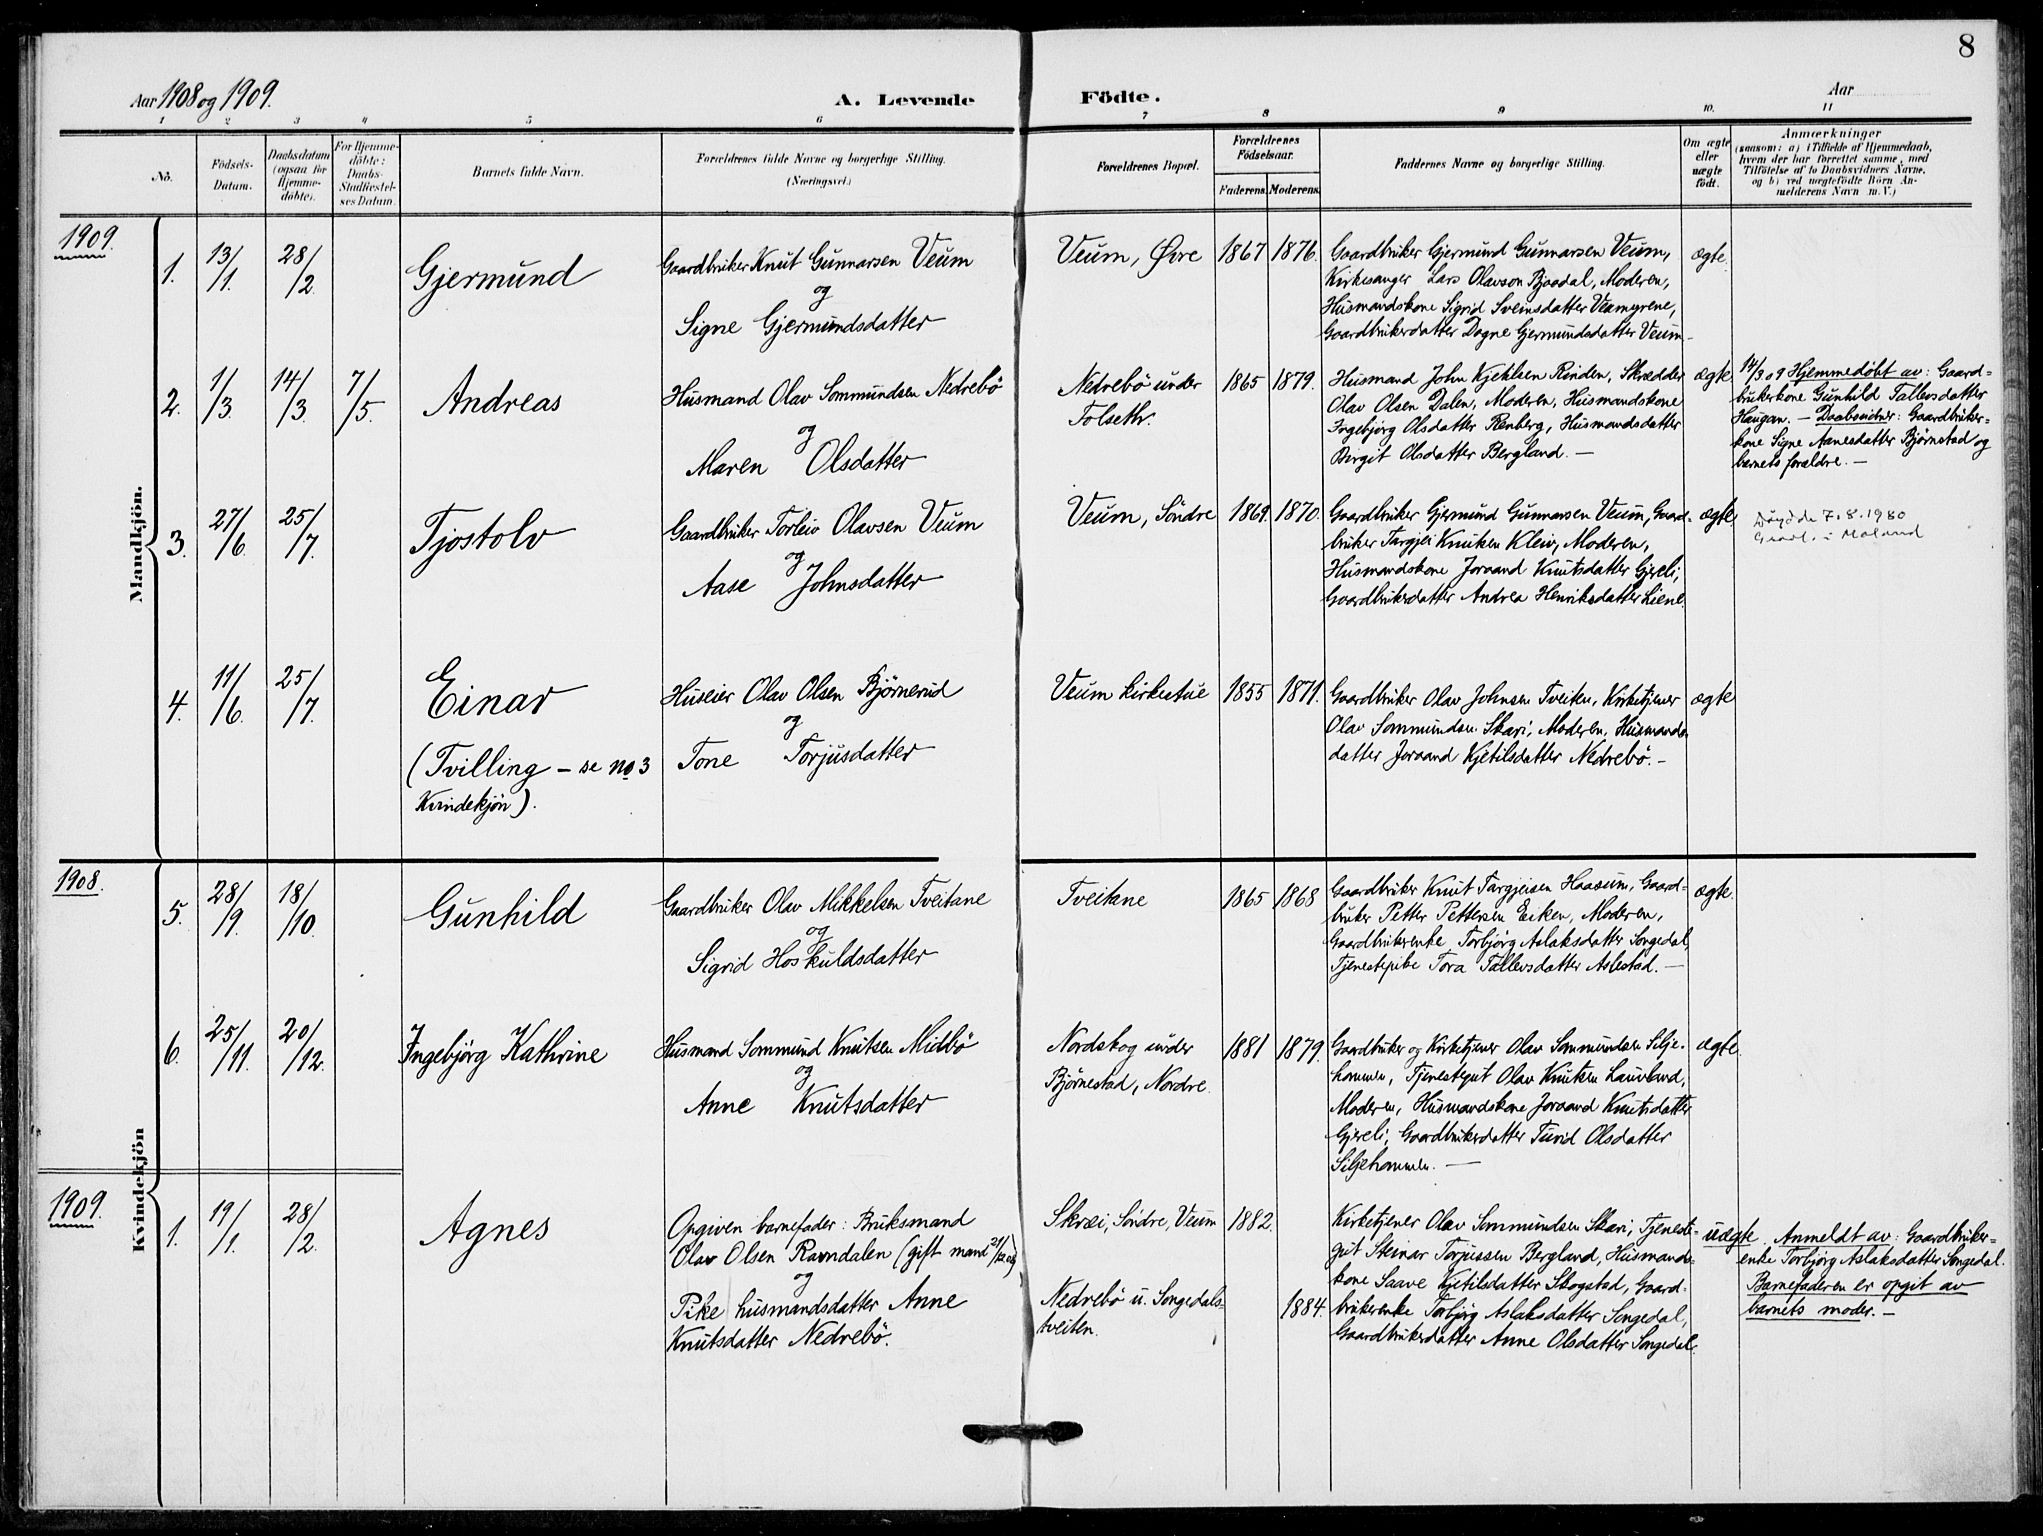 8
Aar 1908 og 1909. A. Levende Födte. Aar
1 2 3 4 5 6 7 8 9 10. 11
No. Födsels-Datum. Daabsdatum (ogsaa for Hjemme-döbte). For Hjemme-döbte: Daabs-Stadfæstel-ses Datum. Barnets fulde Navn. Forældrenes fulde Navne og borgerlige Stilling. (Næringsvei.) Forældrenes Bopæl. Forældrenes Födselsaar. Faderens. Moderens. Faddernes Navne og borgerlige Stilling. Om ægte eller uægte födt. Anmærkninger (saasom: a) i Tilfælde af Hjemmedaab, hvem der har forrettet samme, med Tilföielse af to Daabsvidners Navne, og b) ved uægtefödte Börn An-melderens Navn m. V.)
Mandkjön.
1909.
1. 13/1. 28/2. Gjermund
Gaardbruker Knut Gunnarsen Veum
og
Signe Gjermundsdatter
Veum, Øvre 1867 1876.
Gaardbruker Gjermund Gunnarsen Veum,
Kirkesanger Lars Olavson Bjaadal, Moderen,
Husmandskone Sigrid Sveinsdatter Veumyrene,
Gaardbrukerdatter Dagne Gjermundsdatter Veum
ægte.
2. 1/3. 14/3. 7/5. Andreas
Husmand Olav Sommundsen Nedrebö
og
Maren Olsdatter
Nedrebö under
Folseth.
1865 1879.
Husmand John Kjekksen Rinden, Skrædder
Olav Olsen Dalen, Moderen, Husmandskone
Ingebjörg Olsdatter Renberg, Husmandsdatter
Birgit Olsdatter Bergland. —
ægte
14/3 09 Hjemmedöbt av: Gaard=
brukerkone Gunhild Tallevsdatter
Haugan. — Daabsvidner: Gaardbruker-
kone Signe Aanesdatter Bjørnstad og
barnets forældre. —
3. 27/6. 25/7. Tjostolv
Gaardbruker Torleiv Olavsen Veum
og
Aase Johnsdatter
Veum, Söndre 1869. 1870.
Gaardbruker Gjermund Gunnarsen Veum, Gaard-
bruker Targjei Knutsen Kleiv, Moderen,
Husmandskone Joraand Knutsdatter Gjereli,
Gaardbrukerdatter Andrea Henriksdatter Liene.
ægte
Döydde 7.8.1980
i Moland
4. 11/6. 25/7. Einar
(Tvilling – se no 3
Kvindekjön).
Huseier Olav Olsen Bjørnerud
og
Tone Torjusdatter
Veum kirkestue 1855 1871.
Gaardbruker Olav Johnsen Tveiten, Kirketjener
Olav Sommundsen Skari, Moderen, Husmands-
datter Joraand Kjetilsdatter Nedrebö. –
ægte
Kvindekjön
1908.
5. 28/9. 18/10. Gunhild
Gaardbruker Olav Mikkelsen Tveitane
og
Sigrid Hoskuldsdatter
Tveitane 1865 1868
Gaardbruker Knut Targjeisen Haasum, Gaard-
bruker Petter Pettersen Eiken, Moderen,
Gaardbrukerenke Torbjörg Aslaksdatter Songedal
Tjenestepike Tora Tallevsdatter Aslestad. —
ægte.
6. 25/11. 20/12. Ingebjörg Kathrine
Husmand Sommund Knutsen Midbö
og
Anne Knutsdatter
Nordskog under
Bjørnestad, Nordre.
1881 1879.
Gaardbruker og Kirketjener Olav Sommundsen Silje-
hommen, Tjenestegut Olav Knutsen Lauvland,
Moderen, Husmandskone Joraand Knutsdatter
Gjereli, Gaardbrukerdatter Turid Olsdatter
Siljehommen. —
ægte.
1909.
1. 19/1. 28/2. Agnes
Opgiven barnefader: Bruksmand
Olav Olsen Ravndalen (gift mand
og
Pike husmandsdatter Anne
Knutsdatter Nedrebö.
Skræi, Söndre, Veum 1882.
Nedrebö u. Songedals-
tveiten. 1884.
Kirketjener Olav Sommundsen Skari, Tjeneste-
gut Steinar Torjussen Bergland, Husmands-
kone Saave Kjetilsdatter Skogstad, Gaard-
brukerenke Torbjörg Aslaksdatter Songedal,
Gaardbrukerdatter Anne Olsdatter Songedal.
uægte
Anmeldt av: Gaardbruker-
enke Torbjörg Aslaksdatter Songedal.
Barnefaderen er opgit av
barnets moder. —